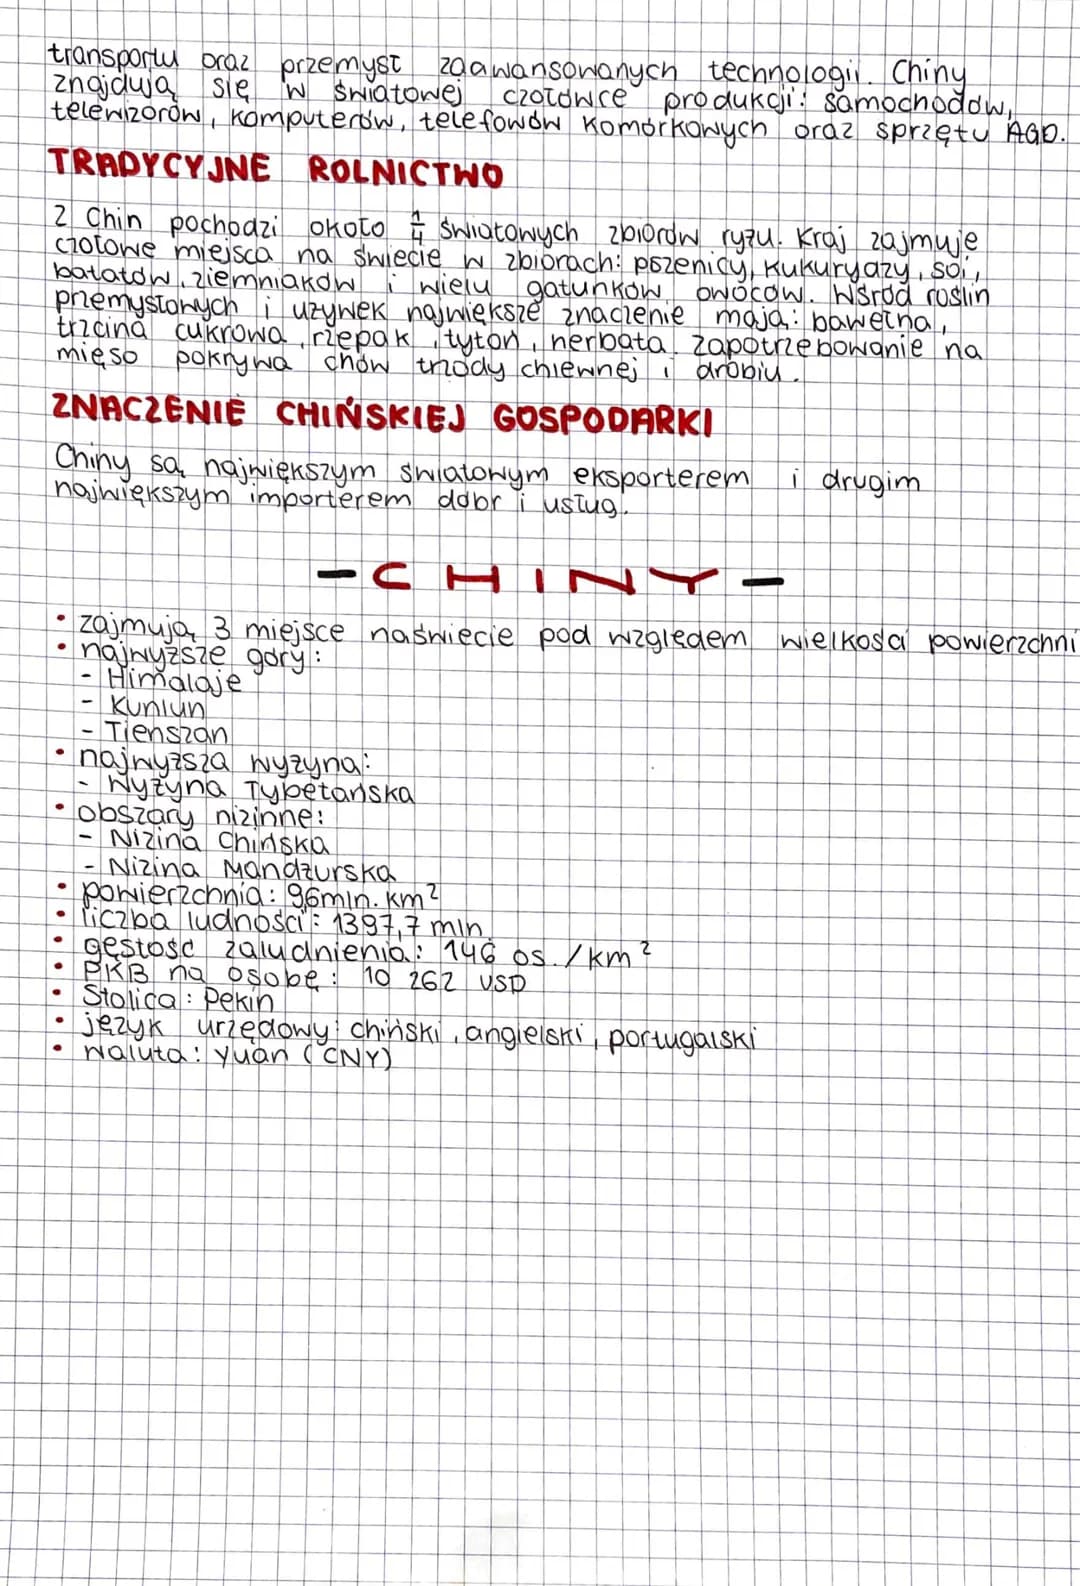 transportu oraz przemysł zaawansowanych technologii. Chiny
znajdują się w światowej czołówce produkcji: samochodów,
telewizorów, komputerów, telefowów komórkowych oraz sprzętu AGD.
TRADYCYJNE ROLNICTWO
Z Chin pochodzi około 1/4 światowych zbiorów ryżu. Kraj zajmuje
czołowe miejsca na świecie w zbiorach: pszenicy, kukurydzy, soi,
batatów, ziemniaków i wielu gatunków owoców. Wśród roślin
przemysłowych i używek największe znaczenie mają: bawełna,
trzcina cukrowa, rzepak, tytoń, herbata. Zapotrzebowanie na
mięso pokrywa chów trzody chlewnej i drobiu.
ZNACZENIE CHIŃSKIEJ GOSPODARKI
Chiny są największym światowym eksporterem i drugim
największym importerem dóbr i usług.
- CHINY -
• zajmują 3 miejsce na świecie pod względem wielkości powierzchni
• najwyższe góry:
- Himalaje
- Kunlun
- Tienszan
• najwyższa wyżyna:
- Wyżyna Tybetańska
• obszary nizinne:
- Nizina Chińska
- Nizina Mandżurska
• powierzchnia: 9,6mln. km²
• liczba ludności: 1397,7 mln.
• gęstość zaludnienia: 146 os./km²
• PKB na osobę: 10 262 USD
• Stolica: Pekin
• język urzędowy: chiński, angielski, portugalski
• waluta: yuan (CNY)